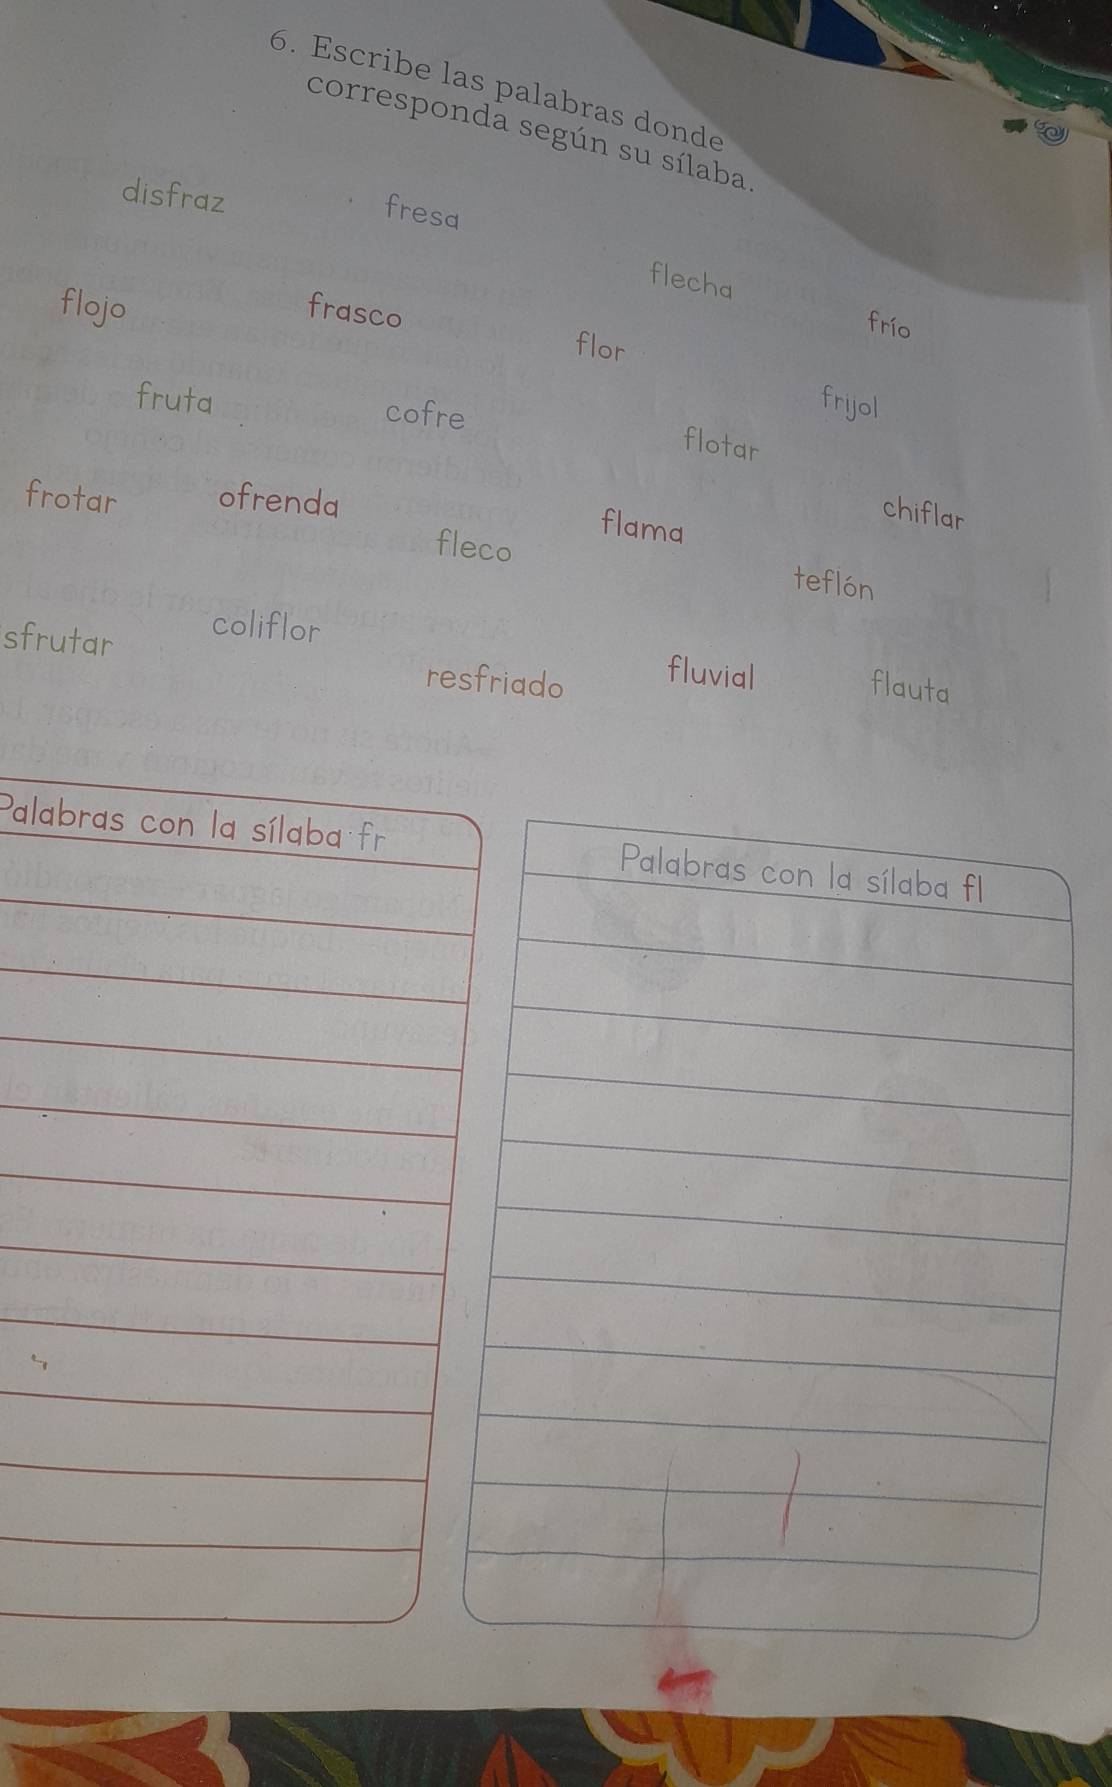 6. Escribe las palabras donde
corresponda según su sílaba.
disfraz fresa
flecha
flojo frasco frío
flor
fruta cofre frijol
flotar
frotar ofrenda flama chiflar
fleco
teflón
sfrutar coliflor
resfriado fluvial flauta
Palabras con la sílaba fr
Palabras con la sílaba fl